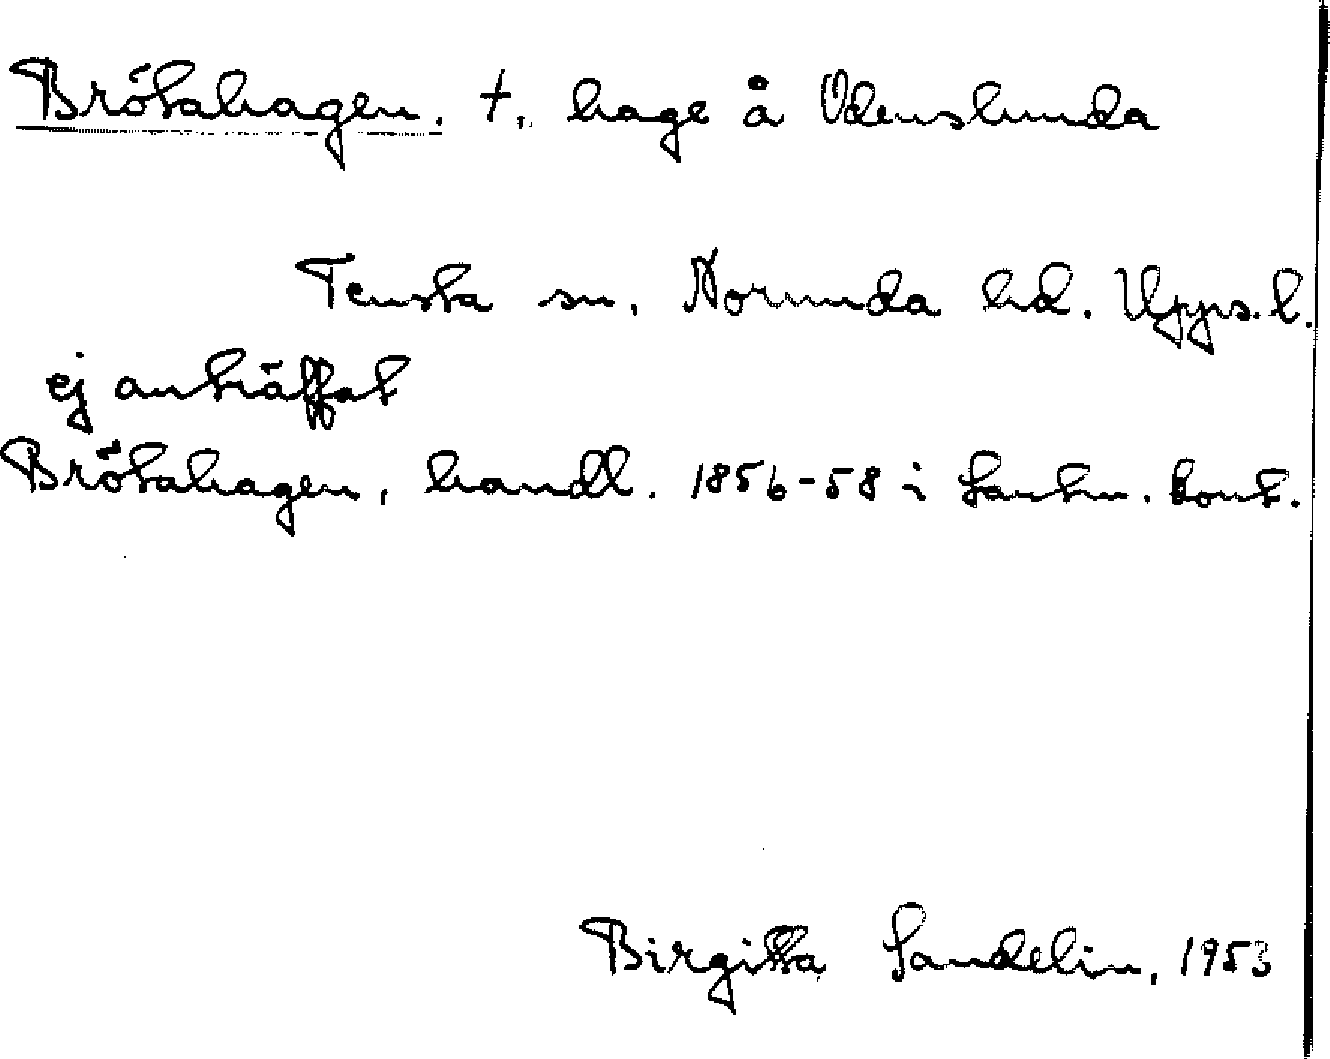 Brötahagen. †, hage å Odenslunda
Tensta sn, Norunda hd. Upps. l.
ej anträffat
Brötahagen, handl. 1856-58 i Lantm. kont.
Birgitta Sandelin, 1953